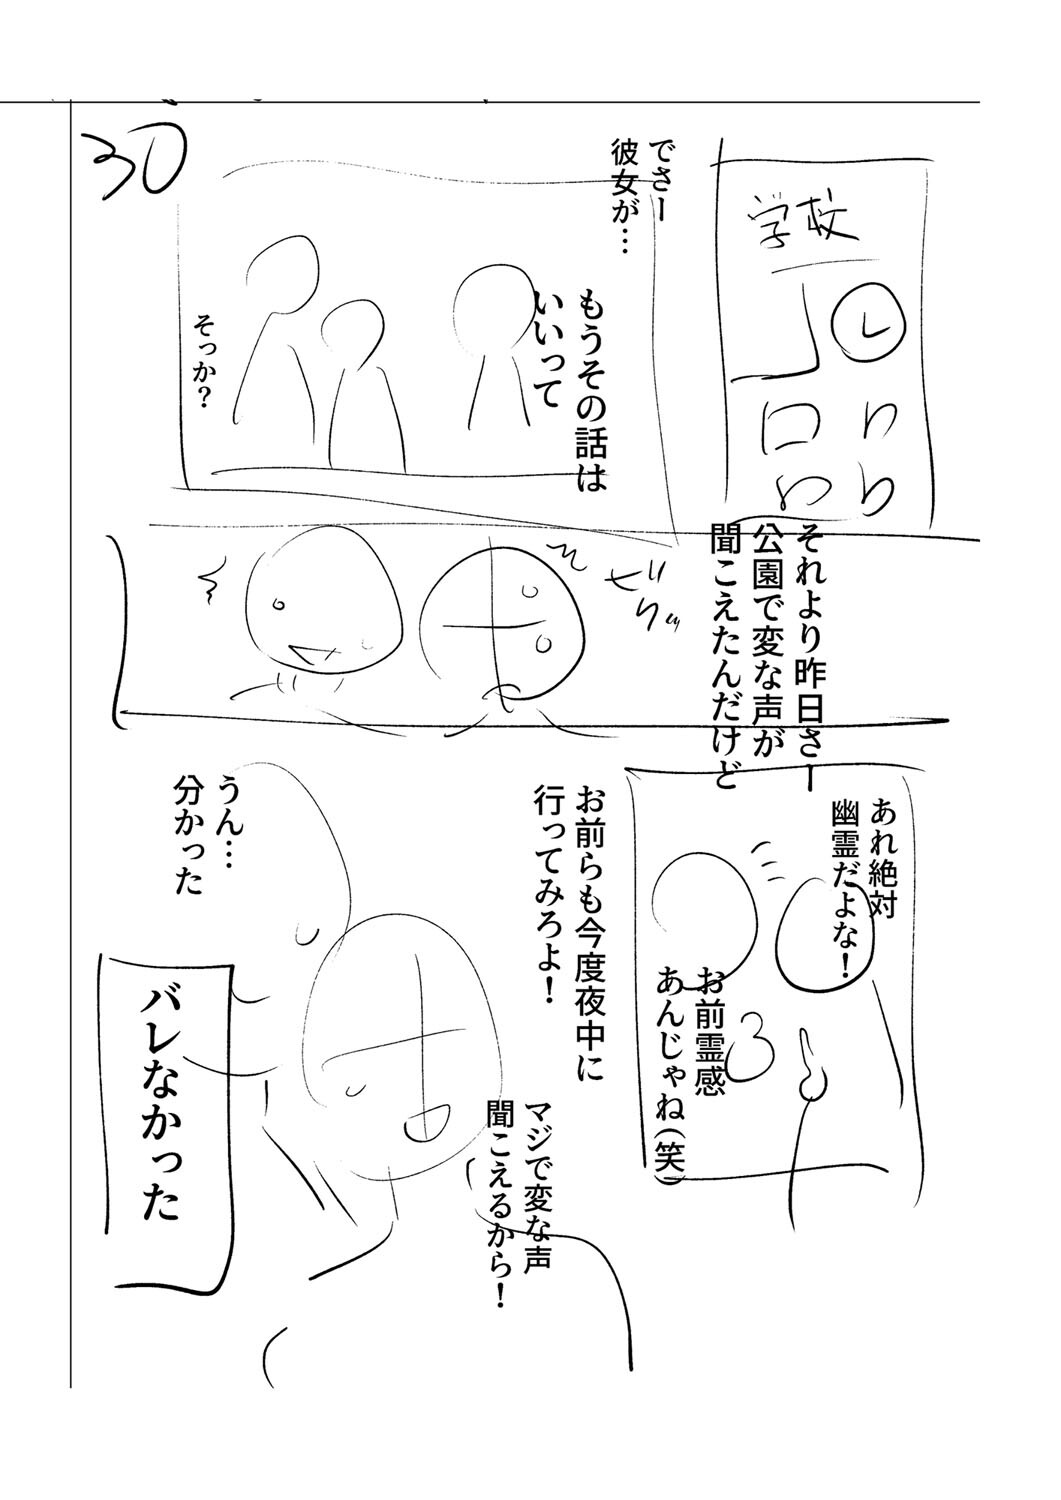 30
学校
でさー
彼女が…
もうその話は
いいって
そっか?
それより昨日さー
公園で変な声が
聞こえたんだけど
ギクッ
あれ絶対
幽霊だよな!
お前霊感
あんじゃね(笑)
お前らも今度夜中に
行ってみろよ!
マジで変な声
聞こえるから!
うん…
分かった
バレなかった